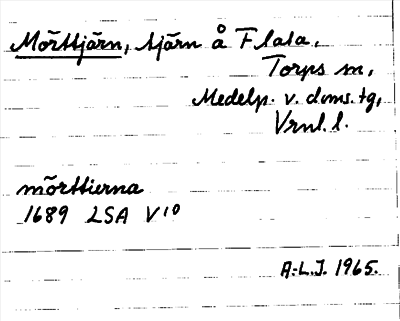 Mörttjärn, tjärn å Flata,
Torps sn,
Medelp. v. doms.tg,
Vrnl. l.
mörttierna
1689 LSA V¹⁰
A.-L.J. 1965.